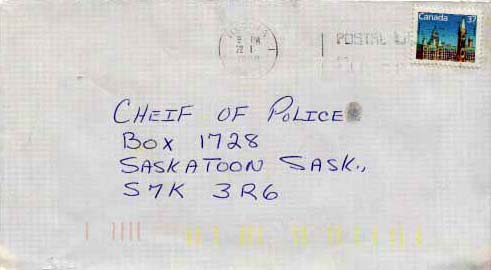 Canada 37
9 PM
22 I
POSTAL
CHEIF OF POLICE
BOX 1728
SASKATOON SASK.,
S7K 3R6